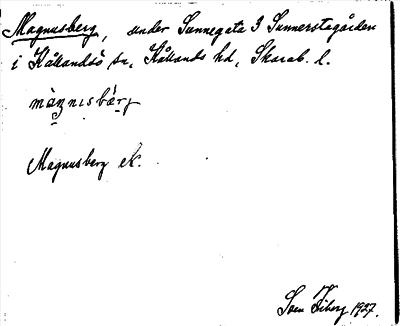 Magnusberg, under Sunnegata 3 Sunnerstagården
i Kållandsö sn, Kållands hd, Skarab. l.
mȧŋnisbærj
Magnusberg ek.
Sven Fiberg 1927.